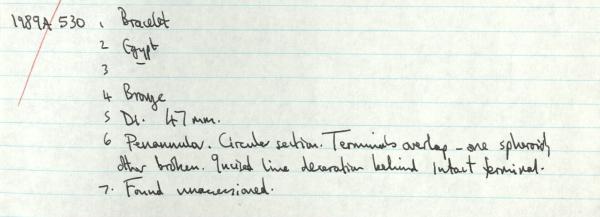 1989A 530 1 Bracelet
2 Egypt
3
4 Bronze
5 Di. 47 mm.
6 Penannular. Circular section. Terminals overlap - one spheroid,
other broken. Incised line decoration behind intact terminal.
7. Found unaccessioned.